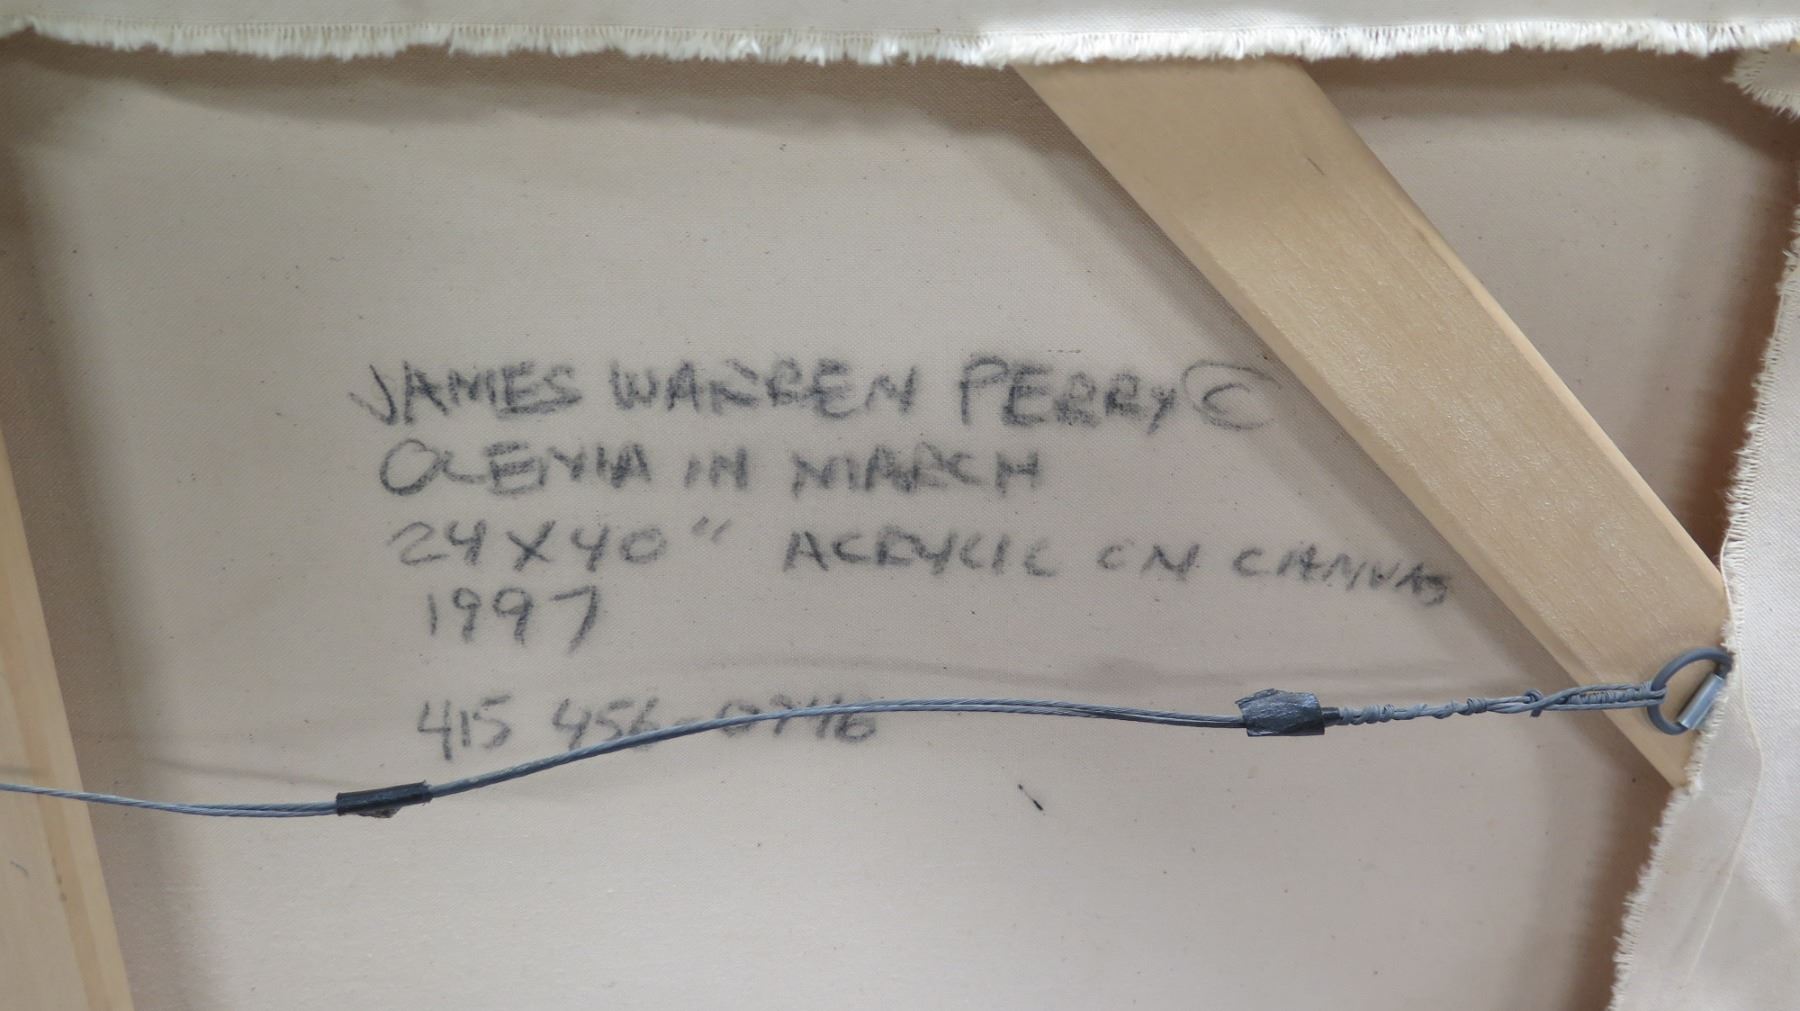 JAMES WARREN PERRY ©
OLEMA IN MARCH
24 X 40" ACRYLIC ON CANVAS
1997
415 456-